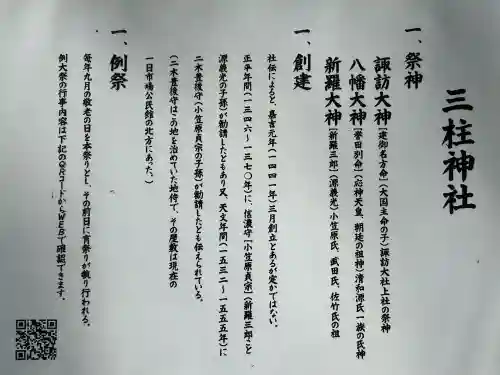 三柱神社
一、祭神
諏訪大神[建御名方命](大国主命の子)諏訪大社上社の祭神
八幡大神[誉田別命](応神天皇、朝廷の祖神)清和源氏一族の氏神
新羅大神[新羅三郎](源義光)小笠原氏、武田氏、佐竹氏の祖
一、創建
社伝によると、嘉吉元年(一四四一年)三月創立とあるが定かではない。
正平年間(一三四六~一三七〇年)に、信濃守[小笠原貞宗](新羅三郎こと
源義光の子孫)が勧請したともあり又、天文年間(一五三二~一五五五年)に
二木豊後守(小笠原貞宗の子孫)が勧請したとも伝えられている。
(二木豊後守はこの地を治めていた地侍で、その居敷は現在の
一日市場公民館の北方にあった。)
一、例祭
毎年九月の敬老の日を本祭りとし、その前日に宵祭りが執り行われる。
例大祭の行事内容は下記のQRコードからWEBで確認できます。